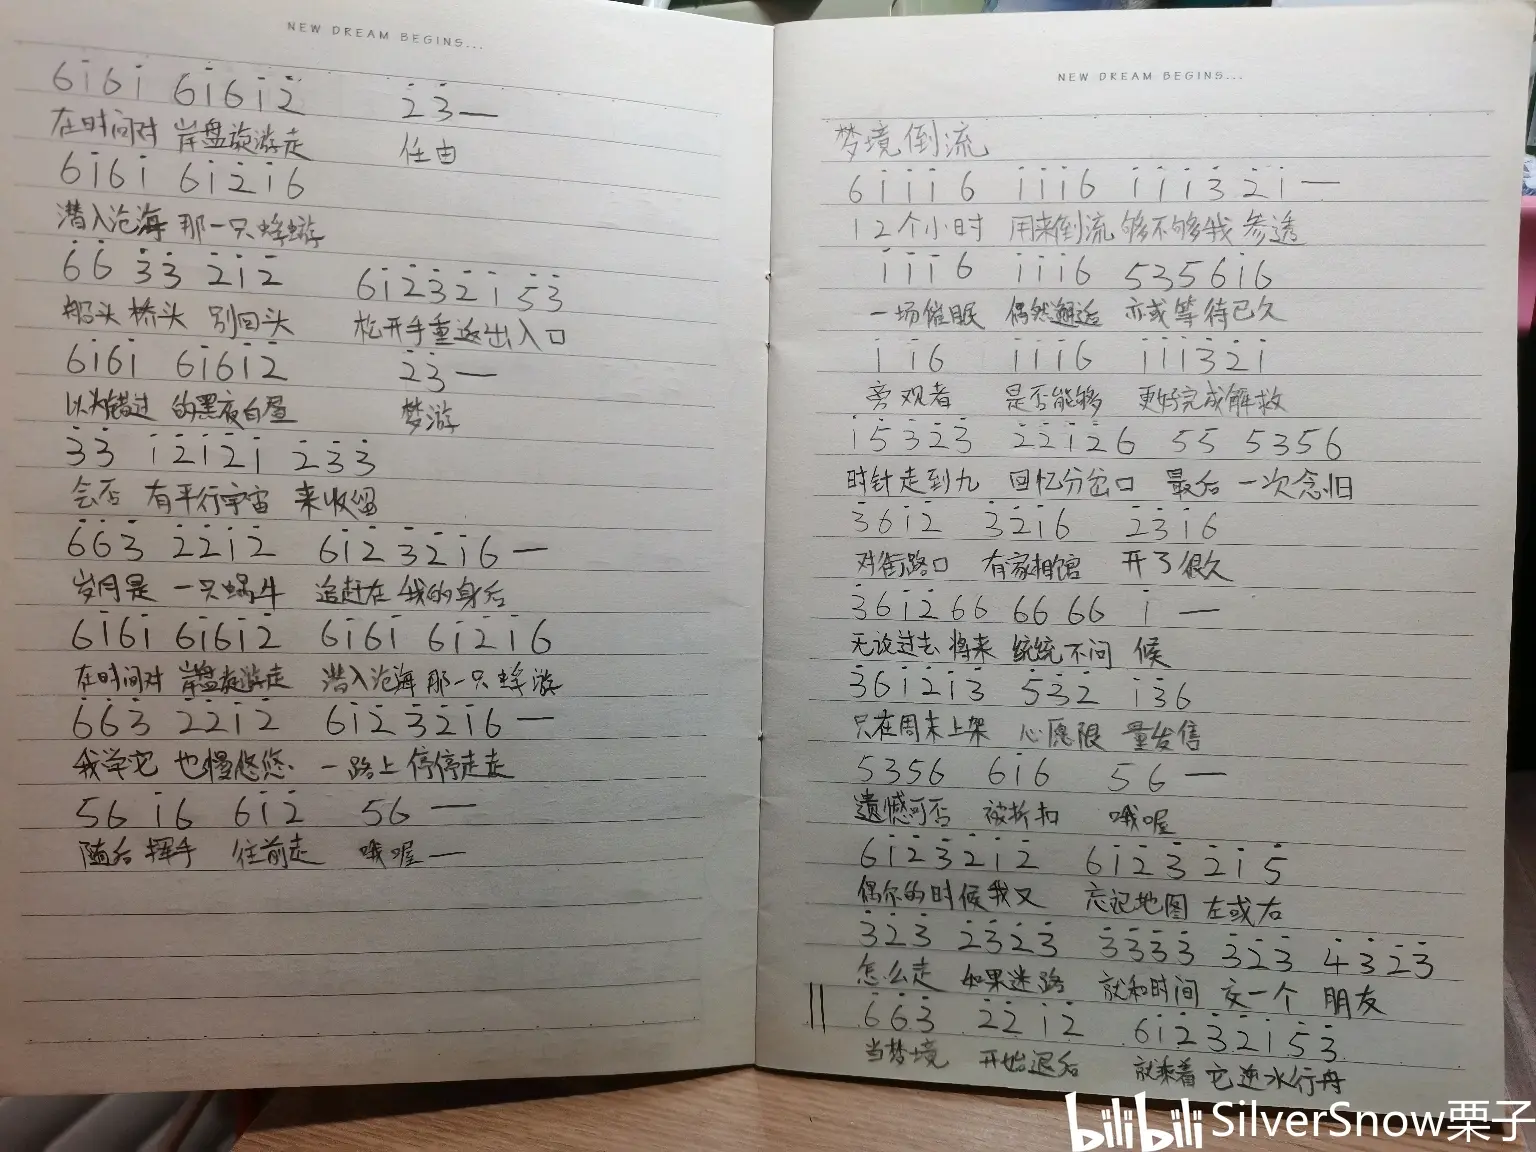 NEW DREAM BEGINS...
6i6i 6i6i2̇ 2̇3̇—
在时间对 岸盘旋游走 任由
6i6i 6i2̇i6
潜入沧海 那一只蜉蝣
6̇6̇ 3̇3̇ 2̇i2̇ 6i2̇3̇2̇i5̇3̇
船头 桥头 别回头 松开手重返出入口
6i6i 6i6i2̇ 2̇3̇—
以为错过 的黑夜白昼 梦游
3̇3̇ i2̇i2̇i 2̇3̇3̇
会否 有平行宇宙 来收留
6̇6̇3̇ 2̇2̇i2̇ 6i2̇3̇2̇i6—
岁月是 一只蜗牛 追赶在 我的身后
6i6i 6i6i2̇ 6i6i 6i2̇i6
在时间对 岸盘旋游走 潜入沧海 那一只 蜉游
6̇6̇3̇ 2̇2̇i2̇ 6i2̇3̇2̇i6—
我学它 也慢悠悠 一路上 停停走走
56 i6 6i2̇ 56—
随后 挥手 往前走 哦喔—
NEW DREAM BEGINS...
梦境倒流
6iii6 iii6 iii3̇2̇i—
12个小时 用来倒流 够不够我 参透
iii6 iii6 5356i6
一场催眠 偶然邂逅 亦或等待已久
ii6 iii6 iii3̇2̇i
旁观者 是否能够 更好完成解救
i5̇3̇2̇3̇ 2̇2̇i2̇6 55 5356
时针走到九 回忆分岔口 最后 一次念旧
3̇6i2̇ 3̇2̇i6 2̇3̇i6
对街路口 有家相馆 开了很久
3̇6i2̇66 66 66 i—
无论过去 将来 统统不问 候
3̇6i2̇i3̇ 5̇3̇2̇ i3̇6
只在周末上架 心愿限 量发售
5356 6i6 56—
遗憾可否 被折扣 哦喔
6i2̇3̇2̇i2̇ 6i2̇3̇2̇i5̇
偶尔的时候我又 忘记地图 左或右
3̇2̇3̇ 2̇3̇2̇3̇ 3̇3̇3̇3̇ 3̇2̇3̇ 4̇3̇2̇3̇
怎么走 如果迷路 就和时间 交一个 朋友
6̇6̇3̇ 2̇2̇i2̇ 6i2̇3̇2̇i5̇3̇
当梦境 开始退后 就乘着它逆水行舟
bilibili SilverSnow栗子